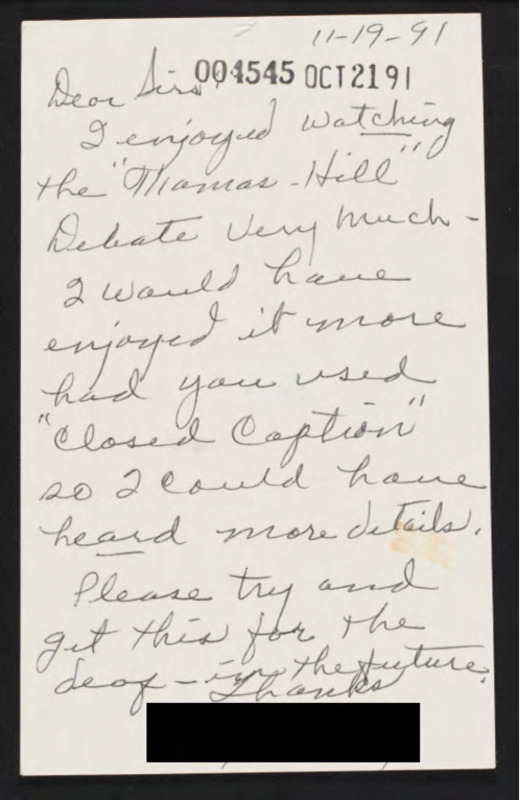 11-19-91
Dear Sirs, 004545 OCT 21 91
I enjoyed watching
the "Thomas-Hill"
Debate very much -
I would have
enjoyed it more
had you used
"Closed Caption"
so I could have
heard more details.
Please try and
get this for the
deaf - in the future.
Thanks